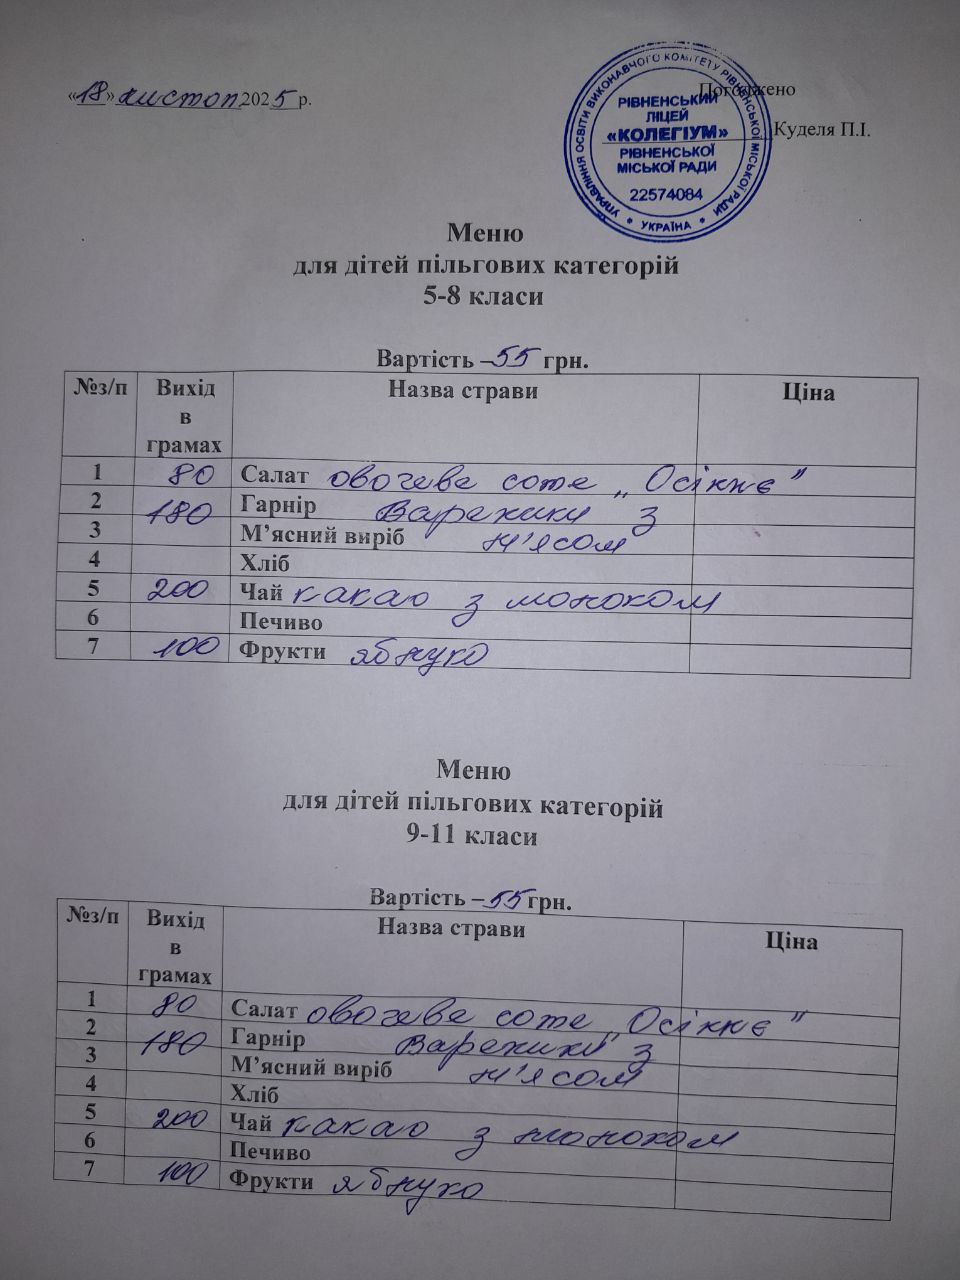 «18» листоп 2025 р.
Погоджено
Куделя П.І.
УПРАВЛІННЯ ОСВІТИ ВИКОНАВЧОГО КОМІТЕТУ РІВНЕНСЬКОЇ МІСЬКОЇ РАДИ
* УКРАЇНА *
РІВНЕНСЬКИЙ
ЛІЦЕЙ
«КОЛЕГІУМ»
РІВНЕНСЬКОЇ
МІСЬКОЇ РАДИ
22574084
Меню
для дітей пільгових категорій
5-8 класи
Вартість – 55 грн.
№з/п Вихід в грамах Назва страви Ціна
1 80 Салат овочеве соте „Осіннє"
2 180 Гарнір Вареники з
3 М’ясний виріб м'ясом
4 Хліб
5 200 Чай какао з молоком
6 Печиво
7 100 Фрукти яблуко
Меню
для дітей пільгових категорій
9-11 класи
Вартість – 55 грн.
№з/п Вихід в грамах Назва страви Ціна
1 80 Салат овочеве соте „Осіннє"
2 180 Гарнір Вареники з
3 М’ясний виріб м'ясом
4 Хліб
5 200 Чай какао з молоком
6 Печиво
7 100 Фрукти яблуко